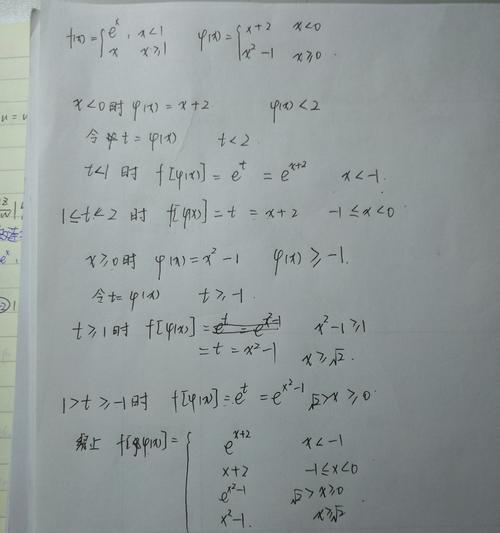 f(x)={e^x, x<1 φ(x)={x+2 x<0
x x≥1 x²-1 x≥0
x<0时 φ(x)=x+2 φ(x)<2
令t=φ(x) t<2
t<1时 f[φ(x)]=e^t=e^{x+2} x<-1.
1≤t<2时 f[φ(x)]=t=x+2 -1≤x<0
x≥0时 φ(x)=x²-1 φ(x)≥-1.
令t=φ(x) t≥-1.
t≥1时 f[φ(x)]=e^t=e^{x²-1} x²-1≥1
=t=x²-1 x≥√2
1>t≥-1时 f[φ(x)]=e^t=e^{x²-1} √2>x≥0
综上 f[φ(x)]={e^{x+2} x<-1
x+2 -1≤x<0
e^{x²-1} √2>x≥0
x²-1. x≥√2